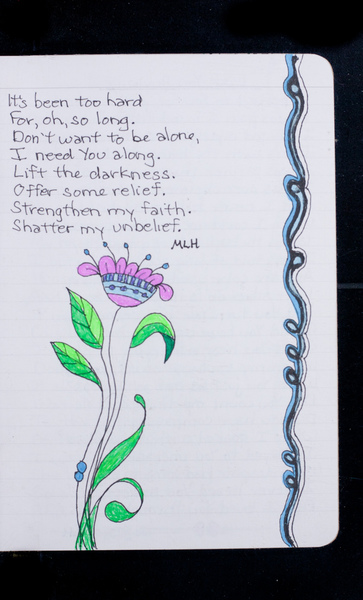 It's been too hard
For, oh, so long.
Don't want to be alone,
I need You along.
Lift the darkness.
Offer some relief.
Strengthen my faith.
Shatter my unbelief.
MLH